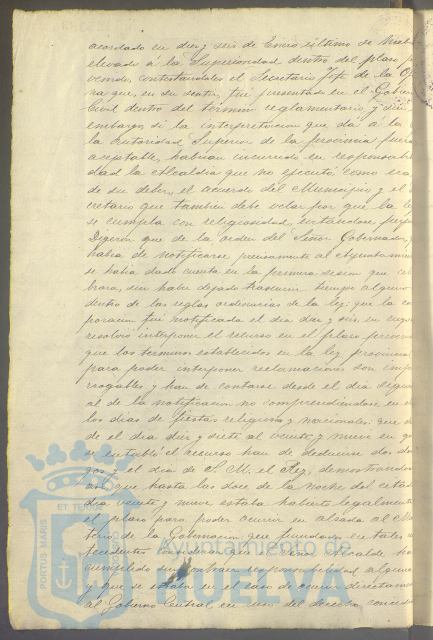 acordado en diez y seis de Enero último se
elevado á la Superioridad dentro del plazo
contestandoles el Secretario Jefe de la
que, en su sentir, fué presentado en el Gobier
Civil dentro del término reglamentario, y sin
embargo si la interpretacion que dá á la
la Autoridad Superior de la provincia fuera
aceptable, habrian incurrido en responsabi
dad la Alcaldia que no ejecutó como era
de su deber, el acuerdo del Municipio y el
cretario que tambien debe velar por que la
se cumpla con religiosidad,
Digeron que de la orden del Señor Gobernador,
habia de notificarse precisamente al Ayuntamien
se habia dado cuenta en la primera sesion que
brara, sin haber dejado trascurrir tiempo alguno
dentro de las reglas ordinarias de la ley: que la
poracion fué notificada el dia diez y seis en
resolvió interponer el recurso en el plazo
que los terminos establecidos en la ley provincial
para poder interponer reclamaciones son impro
rrogables y han de contarse desde el dia siguien
al de la notificacion no comprendiéndose en
los dias de fiestas religiosas y nacionales: que
de el dia diez y siete al veinte y nueve en
se entabló el recurso han de deducirse dos do
gos y el dia de S. M. el Rey, demostrandose
asi que hasta las doce de la noche del citado
dia veinte y nueve estaba habierto legalmente
el plazo para poder ocurrir en alzada al Mi
terio de la Gobernacion que fundados en tales
tecedentes consideran que el Señor Alcalde
cumplido sin contraer responsabilidad alguna
y que se estaba en el caso de ocurrir directamen
al Gobierno Central, en uso del derecho
PORTUS MARIS
ET TERRAE
Ayuntamiento de
HUELVA